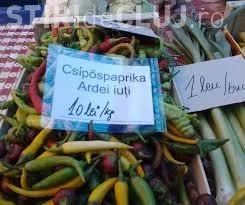 STIRIdeCLUJ.ro
Csípőspaprika
Ardei iuți
10 lei/kg
1 leu/